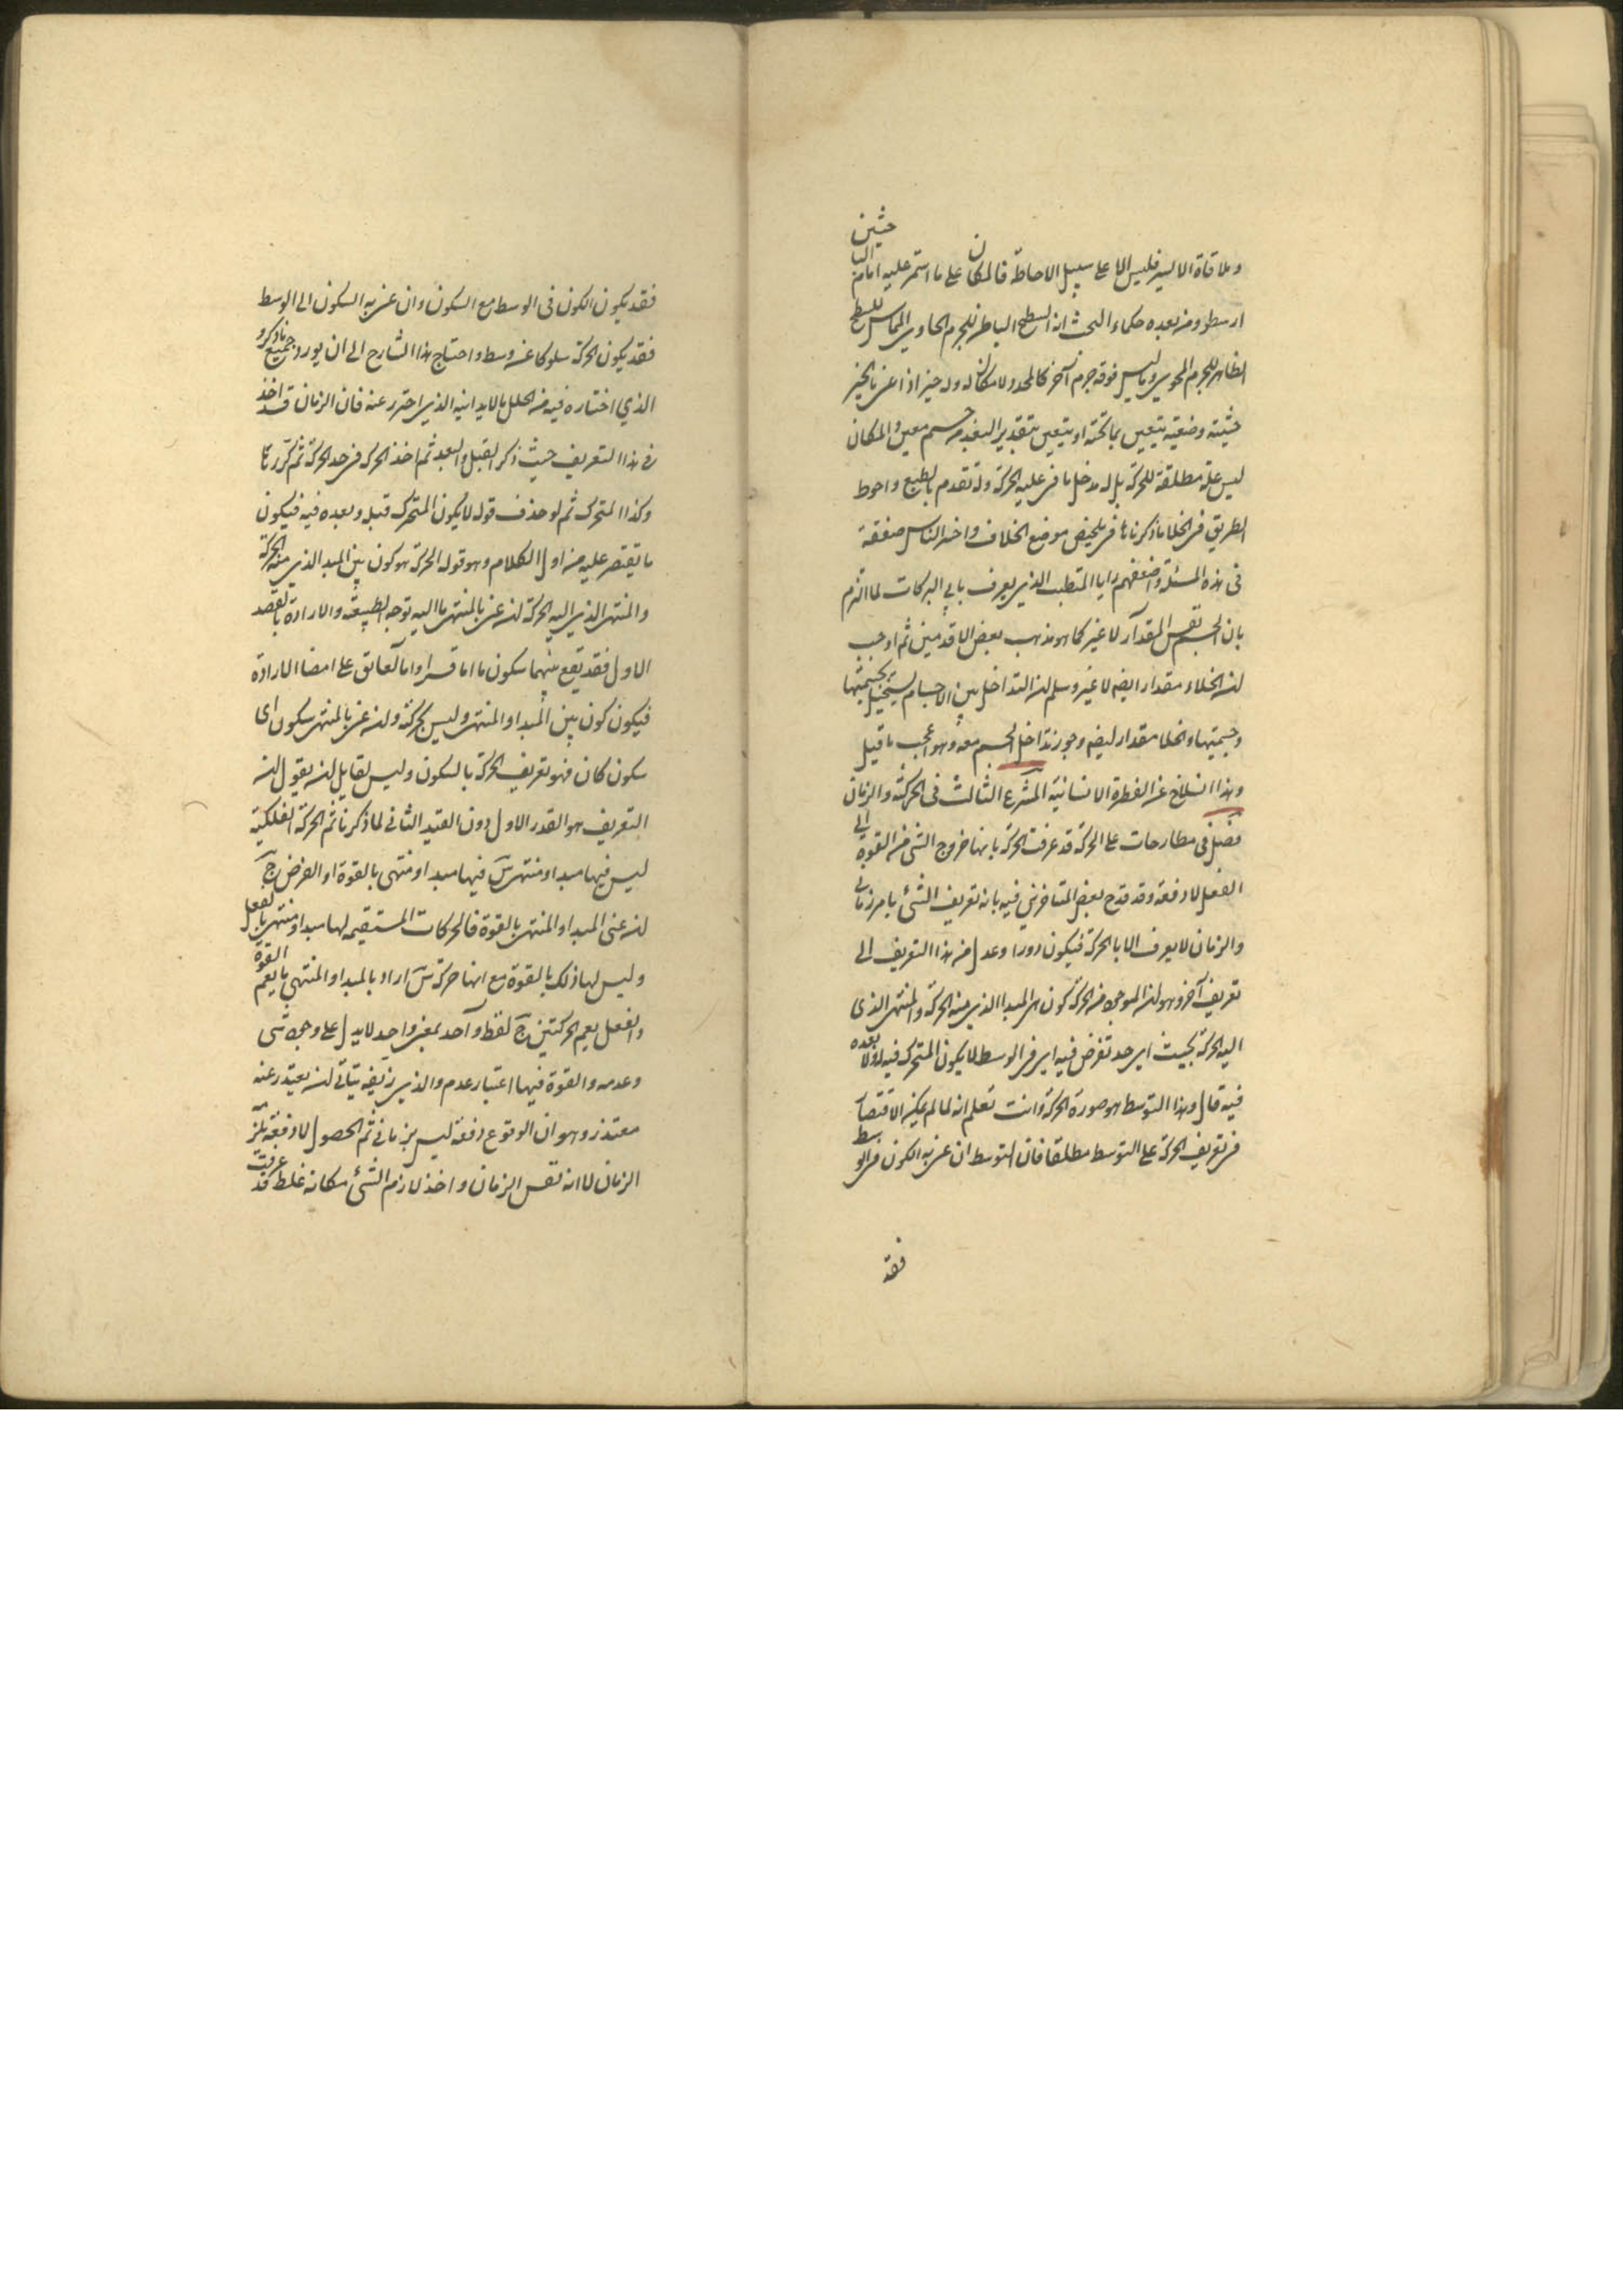 وملاقاة الايسر فليس الا على سبيل الاحاطة فالمكان على ما استمر عليه امام الباحثين
ارسطو ومن بعده حكماء البحث انه السطح الباطن للجرم الحاوي المماس للسطح
الظاهر للجرم المحوي وما ليس فوقه جرم آخر كالمحدد لا مكان له وله حيز اذا عنى بالحيز
حيثية وضعيه يتعين بما تحته او يتعين بتقدير البعد من جسم معين والمكان
ليس علة مطلقة للحركة بل له مدخل ما فى علية الحركة وله تقدم بالطبع واحوط
الطريق فى الخلا ما ذكرناها فى تلخيص موضع الخلاف واخسر الناس صفقة
فى هذه المسئلة واضعفهم رايا المتطبب الذى يعرف بابي البركات لما التزم
بان الجسم نفس المقدار لا غير كما هو مذهب بعض الاقدمين ثم اوجب
ان الخلاء مقدار ايضه لا غير وسلم ان التداخل بين الاجسام يستحيل لجسميتها
وجسميتها والخلا مقدار ايضه وجوز تداخل الجسم معه وهو اعجب ما قيل
وهذا انسلاخ عن الفطرة الانسانية المشرع الثالث فى الحركة والزمان
فصل فى مطارحات على الحركة قد عرفت الحركة بانها خروج الشئ من القوة الى
الفعل لا دفعة وقد قدح بعض المتاخرين فيه بانه تعريف الشئ بامر زمانى
والزمان لا يعرف الا بالحركة فيكون دورا وعدل من هذا التعريف الى
تعريف آخر وهو ان الموجود من الحركة كون بين المبدا الذى منه الحركة والمنتهى الذى
اليه الحركة بحيث اي حد تفرض فيه اي فى الوسط لا يكون المتحرك قبله ولا بعده
فيه قال وهذا التوسط هو صورة الحركة وانت تعلم انه لما لم يمكنه الاقتصار
فى تعريف الحركة على التوسط مطلقا فان التوسط ان عنى به الكون فى الوسط
فقد
فقد يكون الكون فى الوسط مع السكون وان عنى به السكون الى الوسط
فقد يكون الحركة سلوكا عن وسط واحتاج هذا الشارح الى ان يورد جميع ما ذكرو
الذي اختاره فيه من الخلل ما لا يدانيه الذى احترز عنه فان الزمان قد اخذ
فى هذا التعريف حيث ذكر القبل والبعد ثم اخذ الحركة فى حد الحركة ثم كررها
وكذا المتحرك ثم لو حذف قوله لا يكون المتحرك قبله وبعده فيه فيكون
ما يقتصر عليه من اول الكلام وهو قوله الحركة هو كون بين المبدا الذى منه الحركة
والمنتهى الذي اليه الحركة ان عنى بالمنتهى ما اليه توجه الطبيعة والارادة بالقصد
الاول فقد يقع بينهما سكون ما اما قسرا واما لعائق على امضا الارادة
فيكون كون بين المبدا والمنتهى وليس بحركة وان عنى بالمنتهى سكون اى
سكون كان فهو تعريف الحركة بالسكون وليس لقايل ان يقول ان
التعريف هو القدر الاول دون القيد الثانى لما ذكرنا ثم الحركة الفلكية
ليس فيها مبدا ومنتهى س فيها مبدا ومنتهى بالقوة او الفرض ج
ان عنى المبدا والمنتهى بالقوة فالحركات المستقيمه لها مبدا ومنتهى بالفعل
وليس لها ذلك بالقوة مع انها حركة س اراد بالمبدا والمنتهى ما يعم القوة
والفعل يعم الحركتين ج لفظ واحد بمعنى واحد لا يدل على وجود شى
وعدمه والقوة فيها اعتبار عدم والذى زيفه يتاتى ان يعتذر عنه
معتذر وهو ان الوقوع دفعة ليس بزمانى ثم الحصول لا دفعة يلزمه
الزمان لا انه نفس الزمان واخذ لازم الشئ مكانه غلط قد عرفت